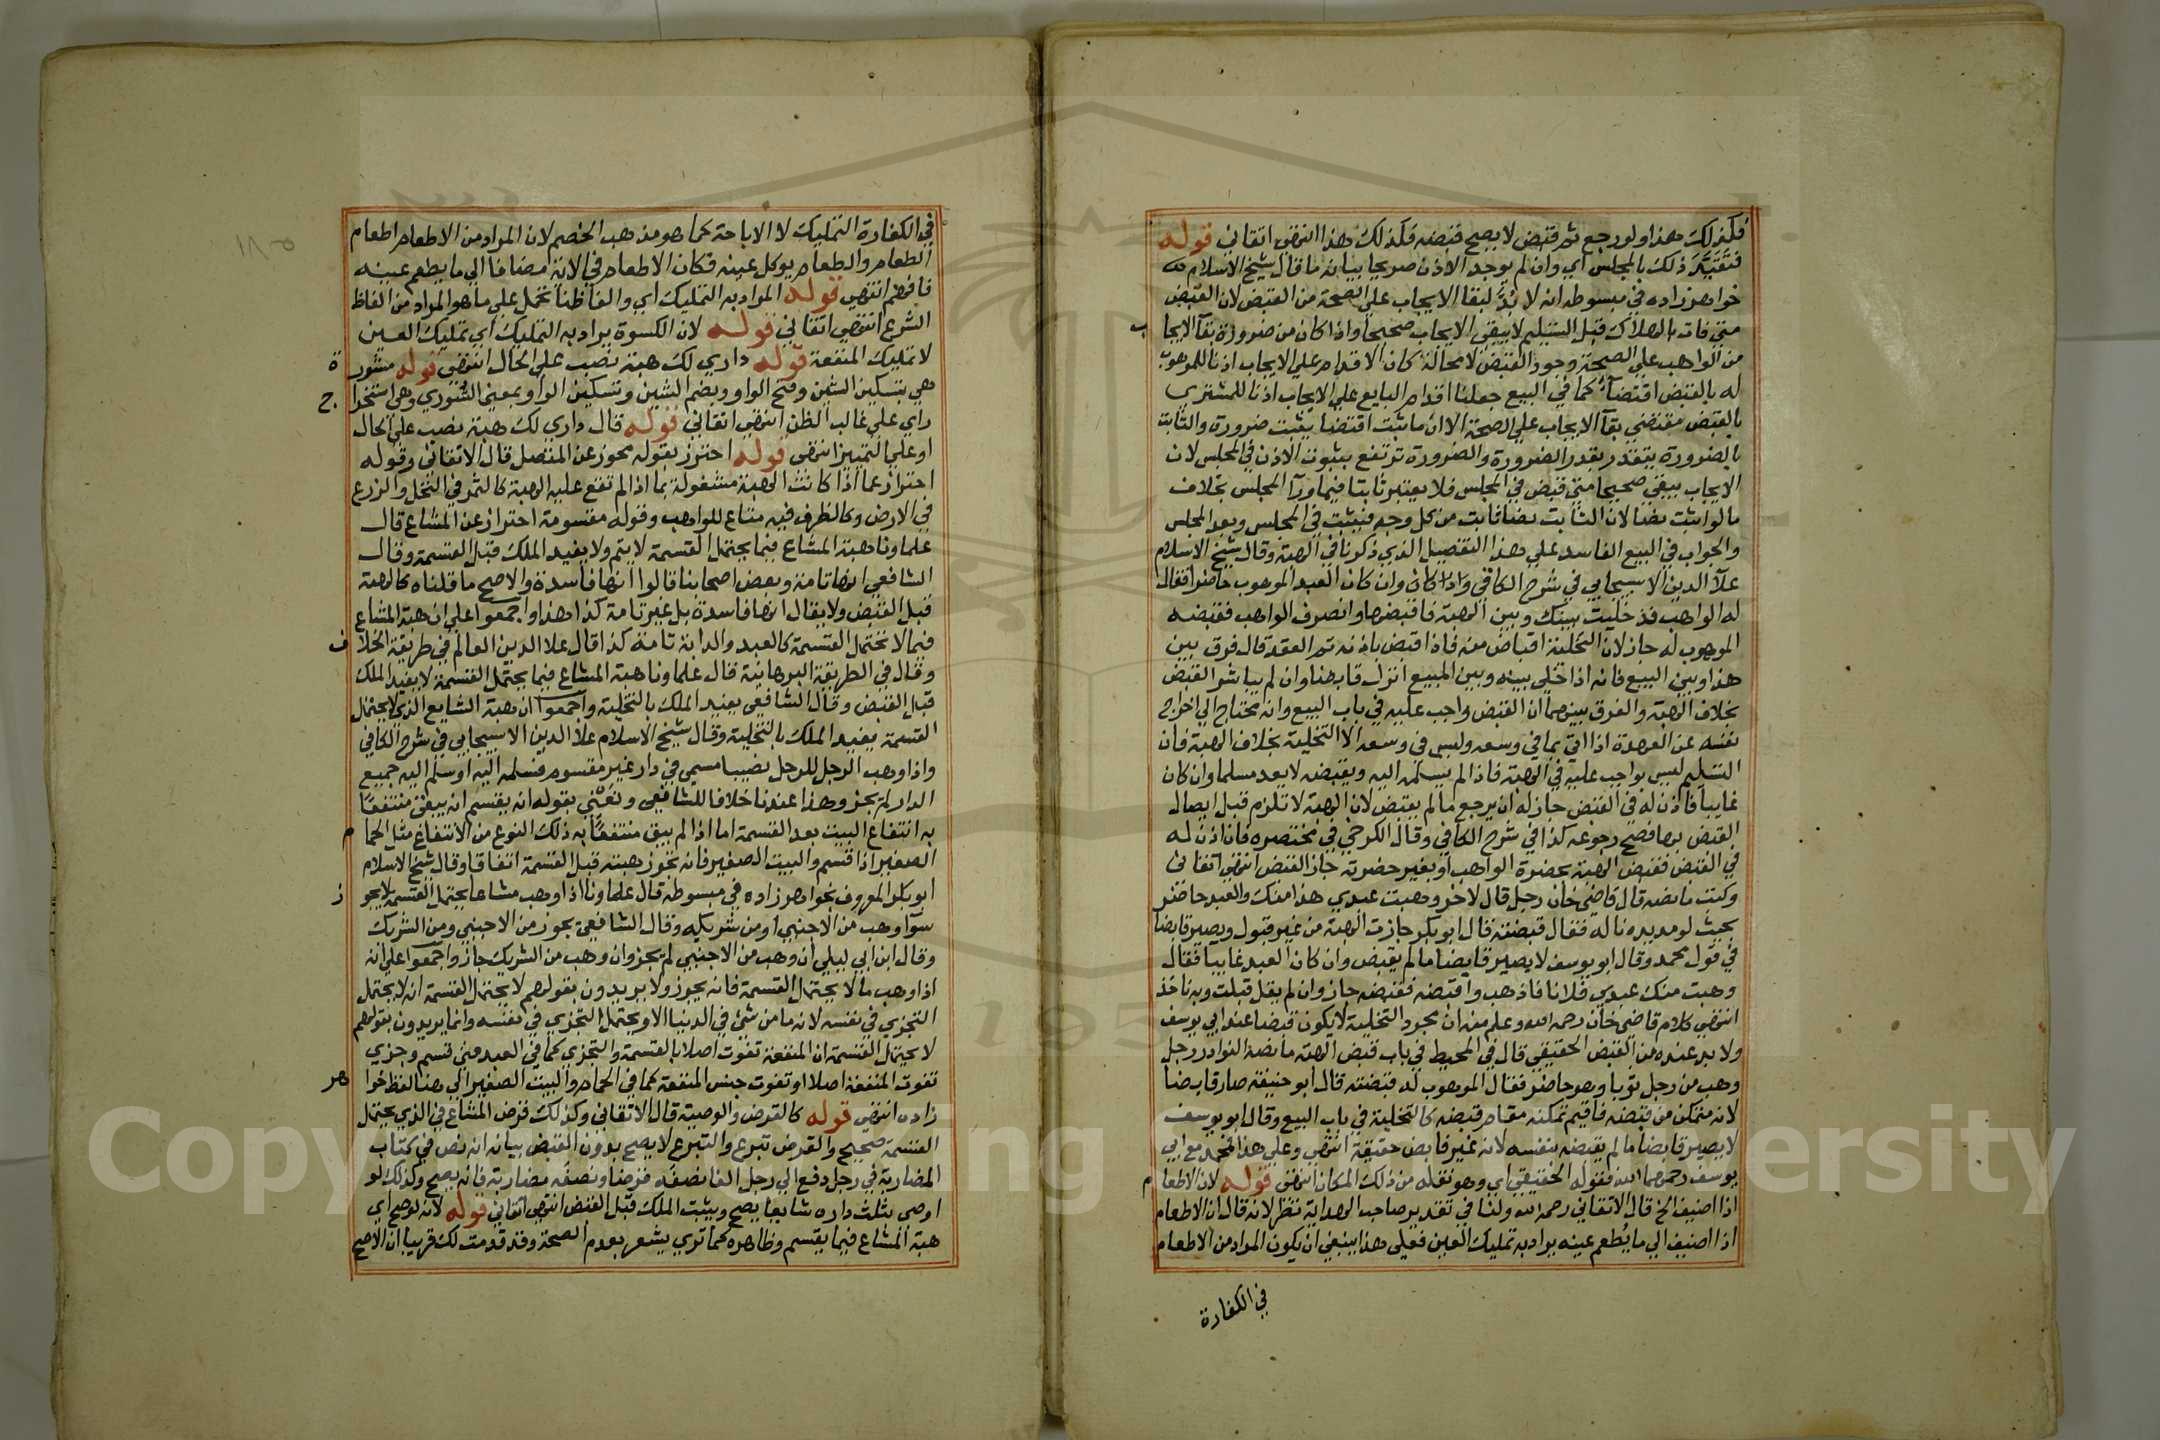 فكذلك هذا ولو رجع ثم قبض لا يصح قبضه فكذلك هذا انتهى اتقاني قوله
فتقيد ذلك بالمجلس اي وان لم يوجد الاذن صريحا بيانه ما قال شيخ الاسلام
خواهر زاده في مبسوطه انه لا بد لبقا الايجاب على الصحة من القبض لان القبض
متى فات بالهلاك قبل التسليم لا يبقى الايجاب صحيحا واذا كان من ضرورة بقآ الايجا ب
من الواهب على الصحة وجود القبض لا محالة كان الاقدام على الايجاب اذنا للموهوب
له بالقبض اقتضآء كما في البيع جعلنا اقدام البايع على الايجاب اذنا للمشتري
بالقبض مقتضى بقآ الايجاب على الصحة الا ان ما ثبت اقتضا يثبت ضرورة والثابت
بالضرورة يتقدر بقدر الضرورة والضرورة ترتفع بثبوت الاذن في المجلس لان
الايجاب يبقى صحيحا متى قبض في المجلس فلا يعتبر ثابتا فيما ورآ المجلس بخلاف
ما لو اثبت نصا لان الثابت نصا ثابت من كل وجه فيثبت في المجلس وبعد المجلس
والجواب في البيع الفاسد على هذا التفصيل الذي ذكرنا في الهبة وقال شيخ الاسلام
علآ الدين الاسبيجابي في شرح الكافي واذا كان وان كان العبد الموهوب حاضرا فقال
له الواهب قد خليت بينك وبين الهبة فاقبضها وانصرف الواهب فقبضه
الموهوب له جاز لان التخلية اقباض منه فاذا قبض باذنه تم العقد قال فرق بين
هذا وبين البيع فانه اذا خلى بينه وبين المبيع انزل قابضا وان لم يباشر القبض
بخلاف الهبة والفرق بينهما ان القبض واجب عليه في باب البيع وانه محتاج الى اخراج
نفسه عن العهدة اذا اتى بما في وسعه وليس في وسعه الا التخلية بخلاف الهبة فان
التسليم ليس بواجب عليه في الهبة فاذا لم يسلمه اليه ويقبضه لا يعد مسلما وان كان
غايبا فاذن له في القبض جاز له ان يرجع ما لم يقبض لان الهبة لا تلزم قبل ايصال
القبض بها فصح رجوعه كذا في شرح الكافي وقال الكرخي في مختصره فان اذن له
في القبض فقبض الهبة بحضرة الواهب او بغير حضرته جاز القبض انتهى اتقاني
وكتب ما نصه قال قاضي خان رجل قال لاخر وهبت عبدي هذا منك والعبد حاضر
بحيث لو مد يده ناله فقال قبضته قال ابو بكر جازت الهبة من غير قبول ويصير قابضا
في قول محمد وقال ابو يوسف لا يصير قابضا ما لم يقبض وان كان العبد غايبا فقال
وهبت منك عبدي فلانا فاذهب واقبضه فقبضه جاز وان لم يقل قبلت وبه ناخذ
انتهى كلام قاضي خان رحمه الله وعلم منه ان مجرد التخلية لا يكون قبضا عند ابي يوسف
ولا بد عنده من القبض الحقيقي قال في المحيط في باب قبض الهبة ما نصه النوادر رجل
وهب من رجل ثوبا وهو حاضر فقال الموهوب له قبضته قال ابو حنيفة صار قابضا
لانه متمكن من قبضه فاقيم تمكنه مقام قبضه كالتخلية في باب البيع وقال ابو يوسف
لا يصير قابضا ما لم يقبضه بنفسه لانه غير قابض حقيقة انتهى وعلى هذا فمحمد مع ابي
يوسف رحمهما الله فقوله الحقيقي اي وهو نقله من ذلك المكان انتهى قوله لان الاطعا م
اذا اضيف الخ قال الاتقاني رحمه الله ولنا في تقدير صاحب الهداية نظر لانه قال ان الاطعام
اذا اضيف الى ما يُطعم عينه يراد به تمليك العين فعلى هذا ينبغي ان يكون المراد من الاطعام
في الكفارة
في الكفارة التمليك لا الاباحة كما هو مذهب الخصم لان المراد من الاطعام اطعام
الطعام والطعام يوكل عينه فكان الاطعام في الاية مضافا الى ما يطعم عينه
فافهم انتهى قوله المراد به التمليك اي والفاظنا تحمل على ما هو المراد من الفاظ
الشرع انتهى اتقاني قوله لان الكسوة يراد به التمليك اي تمليك العين
لا تمليك المنفعة قوله داري لك هبة نصب على الحال انتهى قوله مشور ة
هي بتسكين الشين وفتح الواو وبضم الشين وتسكين الواو بمعنى الشورى وهي استخرا ج
راي على غالب الظن انتهى اتقاني قوله قال داري لك هبة نصب على الحال
او على التمييز انتهى قوله احترز بقوله محوز عن المتصل قال الاتقاني وقوله
احتراز عما اذا كانت الهبة مشغولة بما اذا لم تقع عليه الهبة كالثمر في النخل والزرع
في الارض وكالظرف فيه متاع للواهب وقوله مقسومة احتراز عن المشاع قال
علماونا هبة المشاع فيما يحتمل القسمة لا يتم ولا يفيد الملك قبل القسمة وقال
الشافعي انها تامة وبعض اصحابنا قالوا انها فاسدة والاصح ما قلناه كالهبة
قبل القبض ولا يقال انها فاسدة بل غير تامة كذا هذا واجمعوا على ان هبة المشاع
فيما لا تحتمل القسمة كالعبد والدابة تامة كذا قال علا الدين العالم في طريقة الخلا ف
وقال في الطريقة البرهانية قال علماونا هبة المشاع فيما يحتمل القسمة لا يفيد الملك
قبل القبض وقال الشافعي يفيد الملك بالتخلية واجمعوا ان هبة الشايع الذي لا يحتمل
القسمة يفيد الملك بالتخلية وقال شيخ الاسلام علا الدين الاسبيجابي في شرح الكافي
واذا وهب الرجل للرجل نصيبا مسمى في دار غير مقسوم فسلمه اليه او سلم اليه جميع
الدار لم يجز وهذا عندنا خلافا للشافعي ونعني بقوله انه يقسم ان يبقى منتفعًا
به انتفاع البيت بعد القسمة اما اذا لم يبق منتفعًا به ذلك النوع من الانتفاع مثل الحما م
الصغير اذا قسم والبيت الصغير فانه تجوز هبته قبل القسمة اتفاقا وقال شيخ الاسلام
ابو بكر المعروف بخواهر زاده في مبسوطه قال علماونا اذا وهب مشاعا يحتمل القسمة لا يجو ز
سوآ وهب من الاجنبي او من شريكه وقال الشافعي يجوز من الاجنبي ومن الشريك
وقال ابن ابي ليلى ان وهب من الاجنبي لم يجز وان وهب من الشريك جاز واجمعوا على انه
اذا وهب ما لا يحتمل القسمة فانه يجوز ولا يريدون بقولهم لا يحتمل القسمة انه لا يحتمل
التجزي في نفسه لانه ما من شئ في الدنيا الا ويحتمل التجزي في نفسه وانما يريدون بقولهم
لا يحتمل القسمة ان المنفعة تفوت اصلا بالقسمة والتجزي كما في العبد متى قسم وجزي
تفوت المنفعة اصلا او تفوت جنس المنفعة كما في الحمام والبيت الصغير الى هنا لفظ خوا هر
زاده انتهى قوله كالقرض والوصية قال الاتقاني وكذلك قرض المشاع في الذي يحتمل
القسمة صحيح والقرض تبرع والتبرع لا يصح بدون القبض بيانه انه نص في كتاب
المضاربة في رجل دفع الى رجل الفا نصفه قرضا ونصفه مضاربة فانه يصح وكذلك لو
اوصى بثلث داره شايعا يصح ويثبت الملك قبل القبض انتهى اتقاني قوله لانه لو صح اي
هبة المشاع فيما يقسم وظاهره كما ترى يشعر بعدم الصحة وقد قدمت لك قريبا ان الاصح
Copy King University